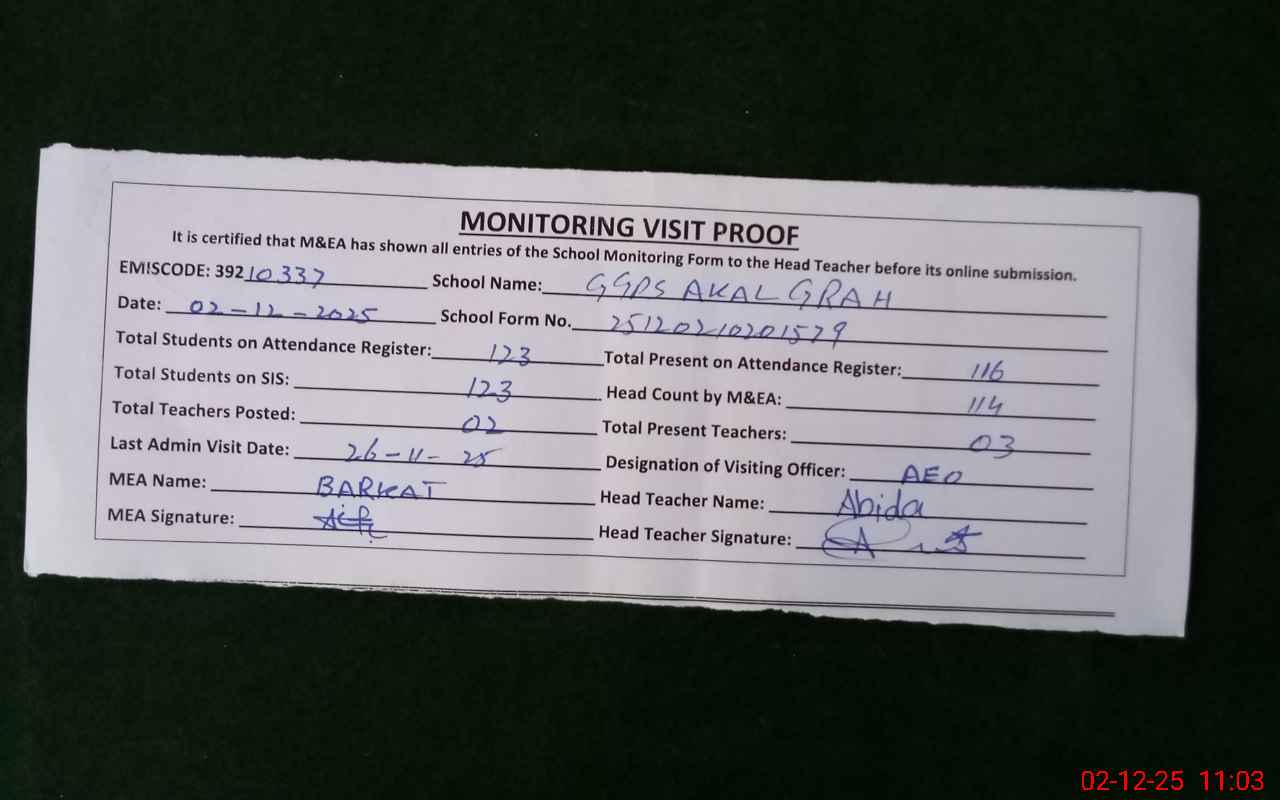 MONITORING VISIT PROOF
It is certified that M&EA has shown all entries of the School Monitoring Form to the Head Teacher before its online submission.
EMISCODE: 39210337 School Name: GGPS AKAL GRAH
Date: 02-12-2025 School Form No. 25120210201579
Total Students on Attendance Register: 123 Total Present on Attendance Register: 116
Total Students on SIS: 123 Head Count by M&EA: 114
Total Teachers Posted: 02 Total Present Teachers: 03
Last Admin Visit Date: 26-11-25 Designation of Visiting Officer: AEO
MEA Name: BARKAT Head Teacher Name: Abida
MEA Signature: Head Teacher Signature:
02-12-25 11:03